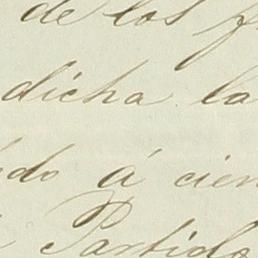 de los
dicha la
do á cien
Partido